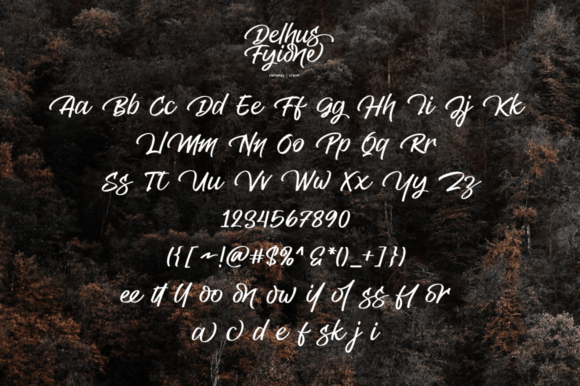 Delhus
Fyione
Aa Bb Cc Dd Ee Ff Gg Hh Ii Jj Kk
Ll Mm Nn Oo Pp Qq Rr
Ss Tt Uu Vv Ww Xx Yy Zz
1234567890
({[~!@#$%^&*()_+]})
ee tt ll oo on ow if of ss fl or
a c d e f sk j i